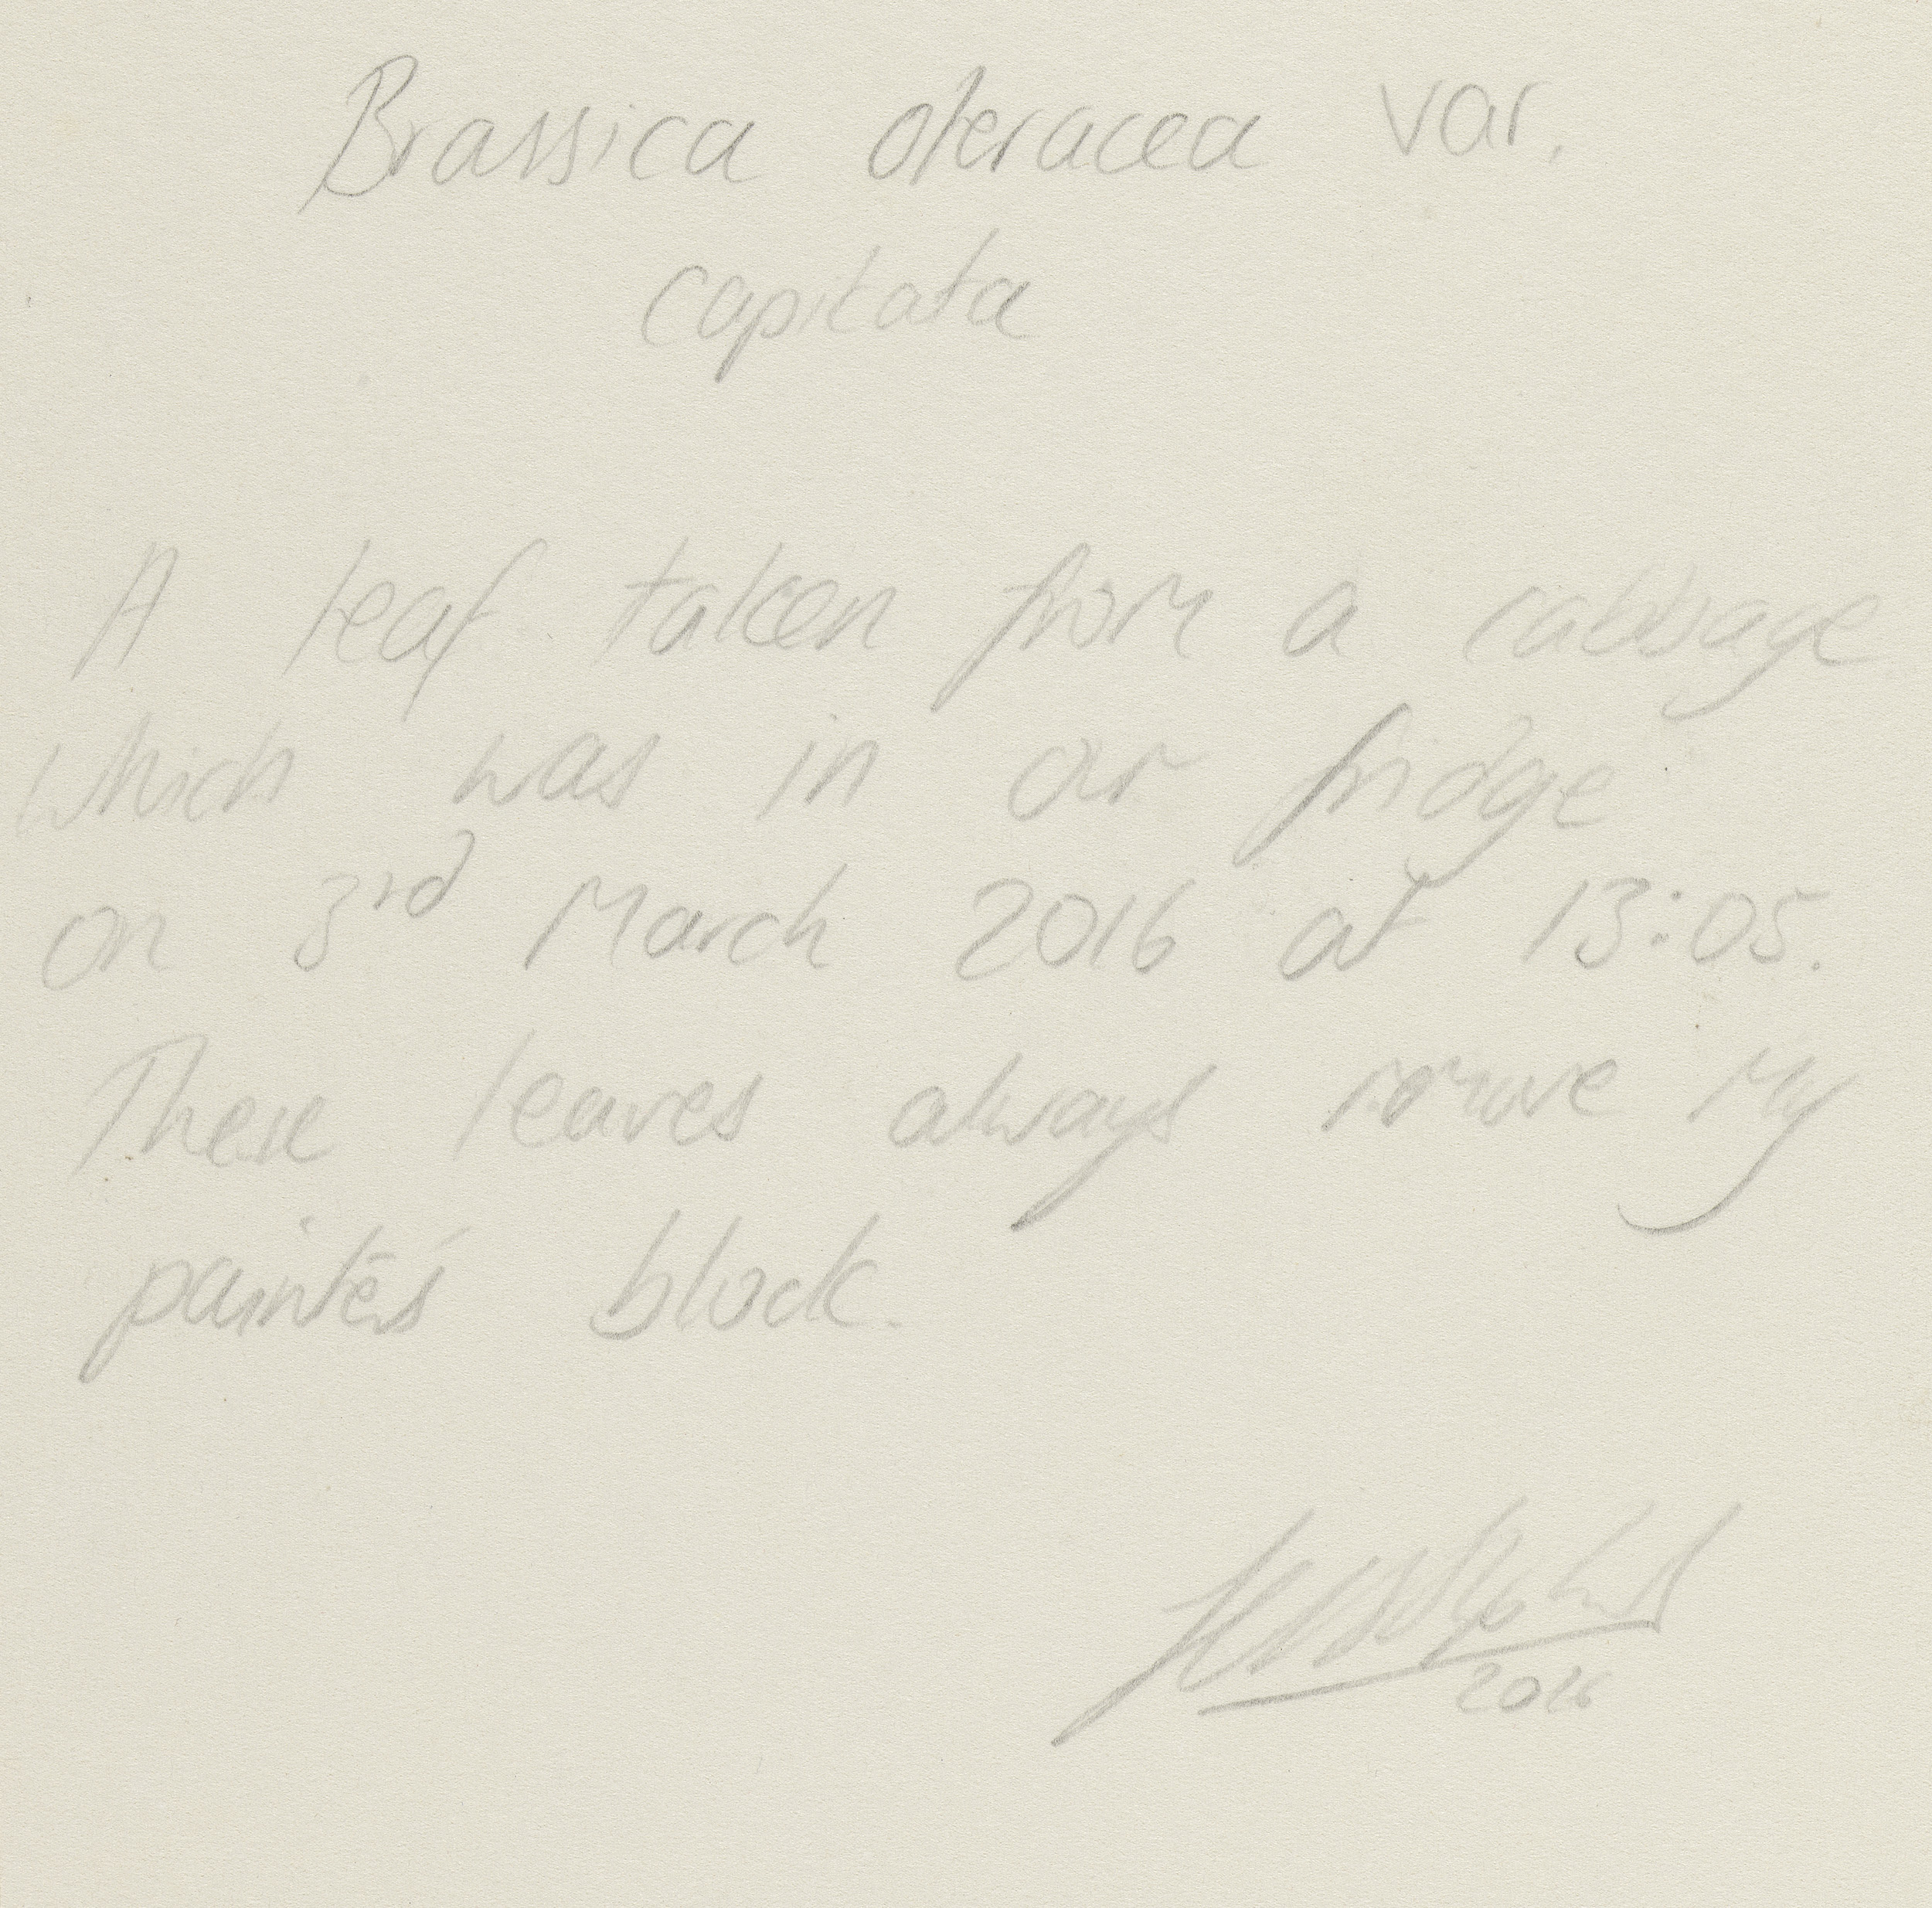 Brassica oleracea var.
capitata
A leaf taken from a cabbage
which was in our fridge
on 3rd March 2016 at 13:05.
These leaves always remove my
painter's block.
2016